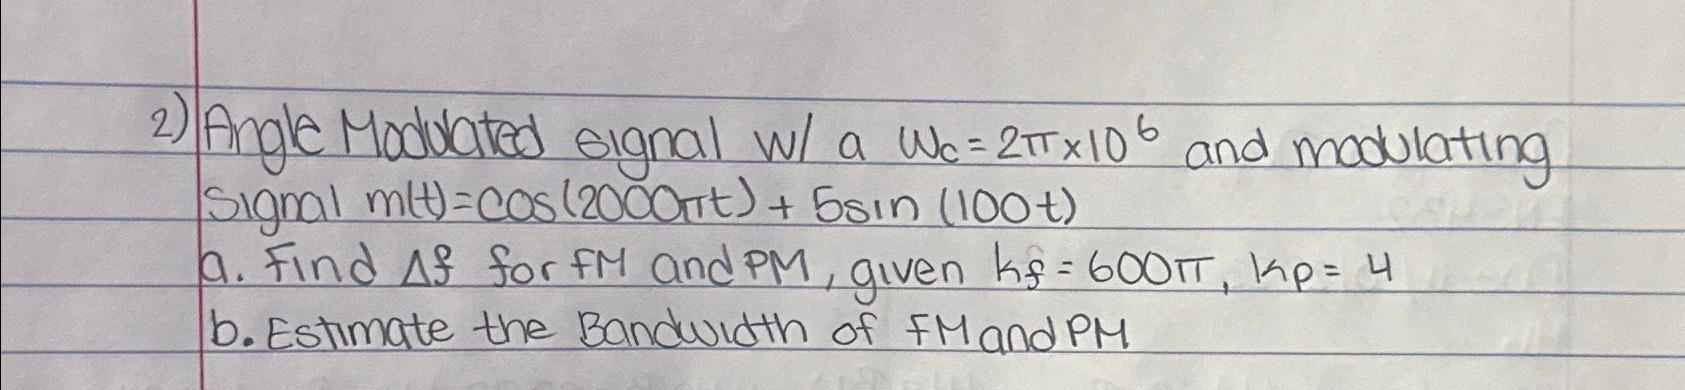 2) Angle Modulated signal w/ a ωc = 2π×10⁶ and modulating
signal m(t)=cos(2000πt) + 5sin(100t)
a. Find Δf for FM and PM, given kf = 600π, kp = 4
b. Estimate the Bandwidth of FM and PM